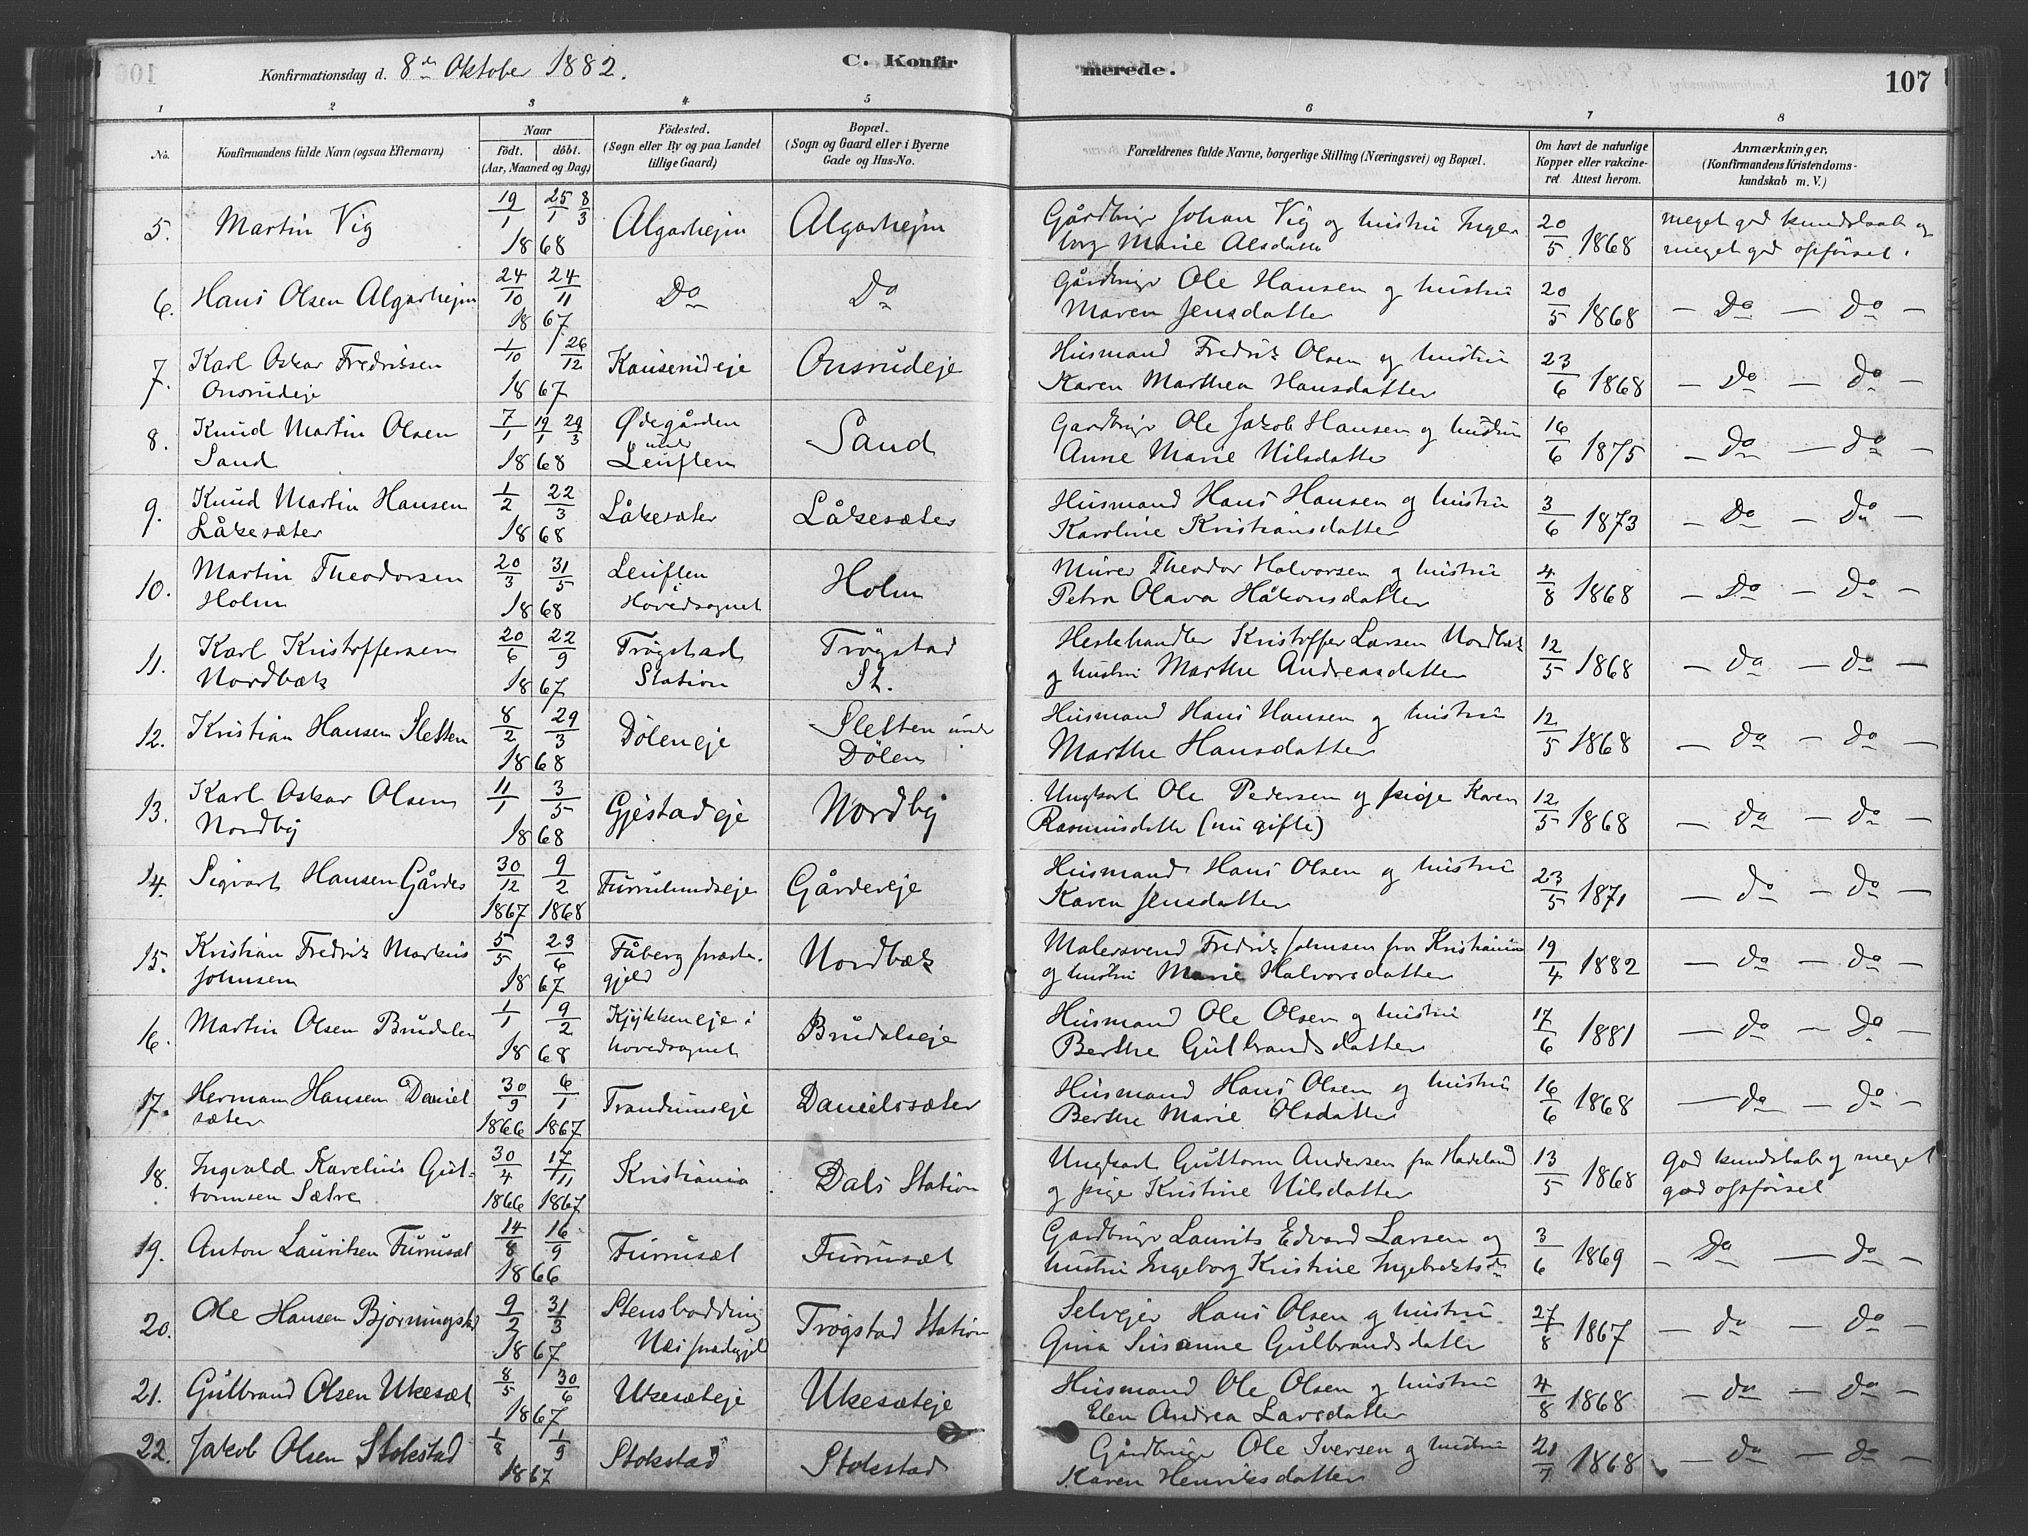 Konfirmationsdag d. 8de Oktober 1882. C. Konfirmerede. 107
1 2 3 4 5 6 7 8
No. Konfirmandens fulde Navn (ogsaa Efternavn) Naar födt. döbt. (Aar, Maaned og Dag) Födested. (Sogn eller By og paa Landet tillige Gaard) Bopæl. (Sogn og Gaard eller i Byerne Gade og Hus-No. Forældrenes fulde Navne, borgerlige Stilling (Næringsvei) og Bopæl. Om havt de naturlige Kopper eller vakcineret Attest herom. Anmærkninger. (Konfirmandens Kristendomskundskab m. V.)
5. Martin Vig 19/1 25/1 8/3 1868 Algarhejm Algarhejm Gårdbruger Johan Vig og hustru Inger
borg Marie Alsdatter 20/5 1868 meget god kundskab og
meget god opførsel.
6. Hans Olsen Algarhejm 24/10 24/11 1867 Do Do Gårdbruger Ole Hansen og hustru
Maren Jensdatter 20/5 1868 — Do — Do —
7. Karl Oskar Fredriksen
Onsrudeje 1/10 26/12 1867 Kauserudeje Onsrudeje Husmand Fredrik Olsen og hustru
Karen Marthea Hansdatter 23/6 1868 — Do — Do —
8. Knud Martin Olsen
Sand 7/1 19/1 29/3 1868 Ødegården
under
Leuflen Sand Gardbruger Ole Jakob Hansen og hustru
Anne Marie Nilsdatter 16/6 1875 — Do — Do —
9. Knud Martin Hansen
Låkesæter 1/2 22/3 1868 Låkesæter Låkesæter Husmand Hans Hansen og hustru
Karoline Kristiansdatter 3/6 1873 — Do — Do —
10. Martin Theodorsen
Holm 20/3 31/5 1868 Leuflen
Hovedsognet Holm Murer Theodor Halvorsen og hustru
Petra Olava Håkonsdatter 4/8 1868 — Do — Do —
11. Karl Kristoffersen
Nordbæk 20/6 22/9 1867 Trøgstad
Station Trøgstad
St. Hestehandler Kristoffer Larsen Nordbæk
og hustru Marthe Andreasdatter 12/5 1868 — do — do —
12. Kristian Hansen Sletten 8/2 29/3 1868 Døleneje Sletten under
Dølen Husmand Hans Hansen og hustru
Marthe Hansdatter 12/5 1868 — do — do —
13. Karl Oskar Olsen
Nordby 11/1 3/5 1868 Gjestadeje Nordby Ungkarl Ole Pedersen og pige Karen
Rasmusdatter (nu gifte) 12/5 1868 — do — do —
14. Sigvart Hansen Gårdes 30/12 1867 9/2 1868 Furrulundseje Gårdereje Husmand Hans Olsen og hustru
Karen Jensdatter 23/5 1871 — do — do —
15. Kristian Fredrik Markus
Johnsen 5/5 23/6 1867 Fåberg præste-
gjeld Nordbæk Malersvend Fredrik Johnsen fra Kristiania
og hustru Marie Halvorsdatter 19/4 1882 — do — do —
16. Martin Olsen Brudalen 1/1 9/2 1868 Kjykkseneje i
hovedsognet Brudalseje Husmand Ole Olsen og hustru
Berthe Gulbrandsdatter 17/6 1881 — do — Do —
17. Herman Hansen Daniel
sæter 30/9 1866 6/1 1867 Trandumseje Danielssæter Husmand Hans Olsen og hustru
Berthe Marie Olsdatter 16/6 1868 — do — do —
18. Ingvald Karelius Gut-
tormsen Sætre 30/4 1866 17/11 1867 Kristiania Dals Station Ungkarl Guttorm Andersen fra Hadeland
og pige Kristine Nilsdatter 13/5 1868 god kundskab og meget
god opførsel
19. Anton Lauritsen Furrusæt 14/8 16/9 1866 Furrusæt Furrusæt Gardbruger Laurits Edvard Larsen og
hustru Ingeborg Kristine Ingebretsdr 3/6 1869 — Do — do —
20. Ole Hansen Bjørningstad 9/2 31/3 1867 Stensbodding
Nes prestegjeld Trøgstad Station Selvejer Hans Olsen og hustru
Gina Susanne Gulbrandsdatter 27/8 1867 — do — do —
21. Gulbrand Olsen Ukesæt 8/5 30/6 1867 Ukesæteje Ukesæteje Husmand Ole Olsen og hustru
Elen Andrea Larsdatter 4/8 1868 — do — do —
22. Jakob Olsen Stokstad 1/8 1/9 1867 Stokstad Stokstad Gårdbruger Ole Iversen og hustru
Karen Henriksdatter 21/7 1868 — do — do —